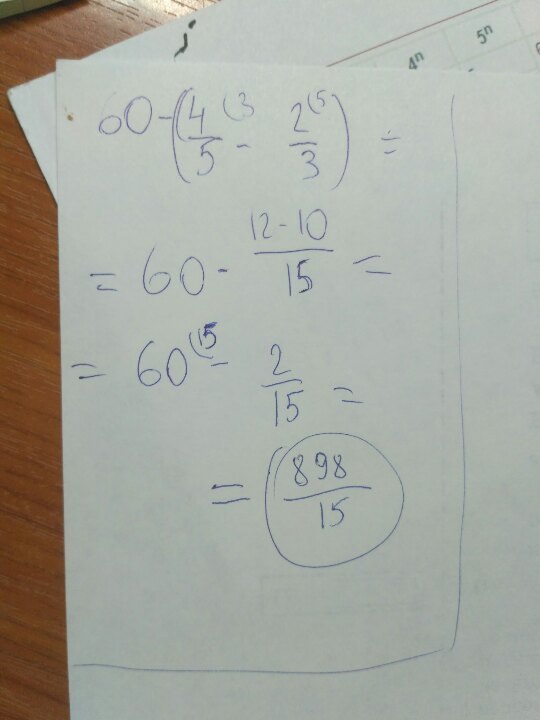 4ⁿ 5ⁿ
60-(4/5 (3 - 2/3 (5) =
= 60 - 12-10/15 =
= 60 (15 - 2/15 =
= 898/15